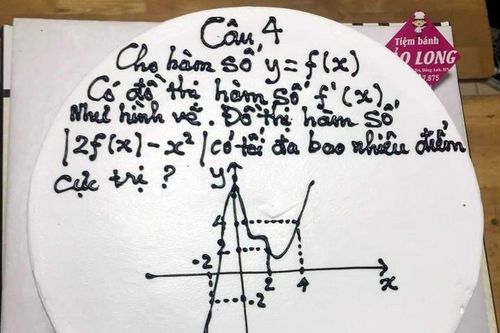 Câu 4
Cho hàm số y = f(x)
Có đồ thị hàm số f'(x)
Như hình vẽ. Đồ thị hàm số
|2f(x) - x²| có tối đa bao nhiêu điểm
cực trị ?
y
4
2
-2
2
4
x
-2
Tiệm bánh
ẢO LONG